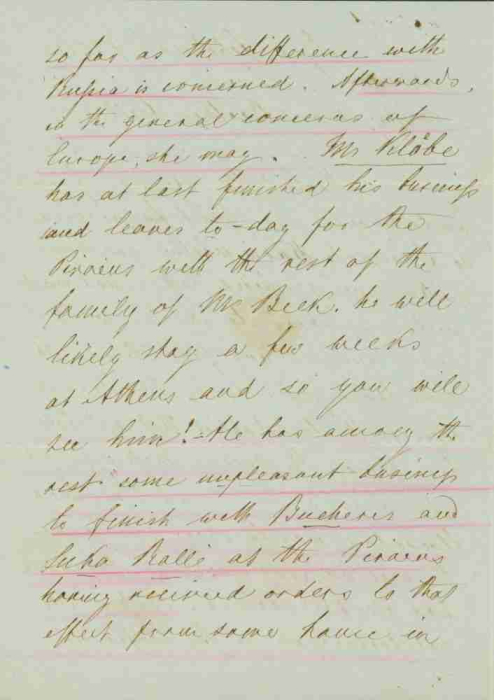 so far as the difference with
Russia is concerned. Afterwards,
in the general concerns of
Europe, she may. Mr Klöbe
has at last finished his business
and leaves to-day for the
Piraeus with the rest of the
family of Mr Beck. he will
likely stay a few weeks
at Athens and so you will
see him! - He has among the
rest some unpleasant business
to finish with Bucherer and
Luka Ralli at the Piraeus
having received orders to that
effect from some house in